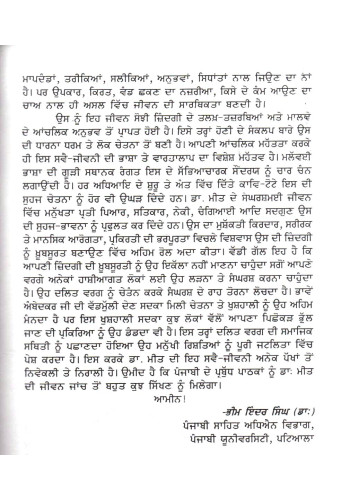 ਮਾਪਦੰਡਾਂ, ਤਰੀਕਿਆਂ, ਸਲੀਕਿਆਂ, ਅਨੁਭਵਾਂ, ਸਿਧਾਂਤਾਂ ਨਾਲ ਜਿਊਣ ਦਾ ਨਾਂ
ਹੈ। ਪਰ ਉਪਕਾਰ, ਕਿਰਤ, ਵੰਡ ਛਕਣ ਦਾ ਨਜ਼ਰੀਆ, ਕਿਸੇ ਦੇ ਕੰਮ ਆਉਣ ਦਾ
ਚਾਅ ਨਾਲ ਹੀ ਅਸਲ ਵਿੱਚ ਜੀਵਨ ਦੀ ਸਾਰਥਿਕਤਾ ਬਣਦੀ ਹੈ।
ਉਸ ਨੂੰ ਇਹ ਜੀਵਨ ਸੋਝੀ ਜ਼ਿੰਦਗੀ ਦੇ ਤਲਖ਼-ਤਜ਼ਰਬਿਆਂ ਅਤੇ ਮਾਲਵੇ
ਦੇ ਆਂਚਲਿਕ ਅਨੁਭਵ ਤੋਂ ਪ੍ਰਾਪਤ ਹੋਈ ਹੈ। ਇਸੇ ਤਰ੍ਹਾਂ ਹੋਣੀ ਦੇ ਸੰਕਲਪ ਬਾਰੇ ਉਸ
ਦੀ ਧਾਰਨਾ ਧਰਮ ਤੇ ਲੋਕ ਚੇਤਨਾ ਤੋਂ ਬਣੀ ਹੈ। ਆਪਣੀ ਆਂਚਲਿਕ ਮਹੱਤਤਾ ਕਰਕੇ
ਹੀ ਇਸ ਸਵੈ-ਜੀਵਨੀ ਦੀ ਭਾਸ਼ਾ ਤੇ ਵਾਰਤਾਲਾਪ ਦਾ ਵਿਸ਼ੇਸ਼ ਮਹੱਤਵ ਹੈ। ਮਲਵਈ
ਭਾਸ਼ਾ ਦੀ ਗੂੜੀ ਸਥਾਨਕ ਰੰਗਤ ਇਸ ਦੇ ਸੱਭਿਆਚਾਰਕ ਸੌਂਦਰਯ ਨੂੰ ਚਾਰ ਚੰਨ
ਲਗਾਉਂਦੀ ਹੈ। ਹਰ ਅਧਿਆਇ ਦੇ ਸ਼ੁਰੂ ਤੇ ਅੰਤ ਵਿੱਚ ਦਿੱਤੇ ਕਾਵਿ-ਟੋਟੇ ਇਸ ਦੀ
ਸੁਹਜ ਚੇਤਨਾ ਨੂੰ ਹੋਰ ਵੀ ਉਘੜ ਦਿੰਦੇ ਹਨ। ਡਾ. ਮੀਤ ਦੇ ਸੰਘਰਸ਼ਮਈ ਜੀਵਨ
ਵਿੱਚ ਮਨੁੱਖਤਾ ਪ੍ਰਤੀ ਪਿਆਰ, ਸਤਿਕਾਰ, ਨੇਕੀ, ਚੰਗਿਆਈ ਆਦਿ ਸਦਗੁਣ ਉਸ
ਦੀ ਸੁਹਜ-ਭਾਵਨਾ ਨੂੰ ਪ੍ਰਫੁਲਤ ਕਰ ਦਿੰਦੇ ਹਨ। ਉਸ ਦਾ ਮੁਸ਼ੱਕਤੀ ਕਿਰਦਾਰ, ਸਰੀਰਕ
ਤੇ ਮਾਨਸਿਕ ਆਰੋਗਤਾ, ਪ੍ਰਕਿਰਤੀ ਦੀ ਭਰਪੂਰਤਾ ਵਿਚਲੇ ਵਿਸ਼ਵਾਸ ਉਸ ਦੀ ਜ਼ਿੰਦਗੀ
ਨੂੰ ਖ਼ੂਬਸੂਰਤ ਬਣਾਉਣ ਵਿੱਚ ਅਹਿਮ ਰੋਲ ਅਦਾ ਕੀਤਾ। ਵੱਡੀ ਗੱਲ ਇਹ ਹੈ ਕਿ
ਆਪਣੀ ਜ਼ਿੰਦਗੀ ਦੀ ਖ਼ੂਬਸੂਰਤੀ ਨੂੰ ਉਹ ਇਕੱਲਾ ਨਹੀਂ ਮਾਣਨਾ ਚਾਹੁੰਦਾ ਸਗੋਂ ਆਪਣੇ
ਵਰਗੇ ਅਨੇਕਾਂ ਹਾਸ਼ੀਆਗਤ ਲੋਕਾਂ ਲਈ ਉਹ ਲੜਨਾ ਤੇ ਸੰਘਰਸ਼ ਕਰਨਾ ਚਾਹੁੰਦਾ
ਹੈ। ਉਹ ਦਲਿਤ ਵਰਗ ਨੂੰ ਚੇਤੰਨ ਕਰਕੇ ਸੰਘਰਸ਼ ਦੇ ਰਾਹ ਤੋਰਨਾ ਲੋਚਦਾ ਹੈ। ਭਾਵੇਂ
ਅੰਬੇਦਕਰ ਜੀ ਦੀ ਵੱਡਮੁੱਲੀ ਦੇਣ ਸਦਕਾ ਮਿਲੀ ਚੇਤਨਾ ਤੇ ਖੁਸ਼ਹਾਲੀ ਨੂੰ ਉਹ ਅਹਿਮ
ਮੰਨਦਾ ਹੈ ਪਰ ਇਸ ਖੁਸ਼ਹਾਲੀ ਸਦਕਾ ਕੁਝ ਲੋਕਾਂ ਵੱਲੋਂ ਆਪਣਾ ਪਿਛੋਕੜ ਭੁੱਲ
ਜਾਣ ਦੀ ਪ੍ਰਕਿਰਿਆ ਨੂੰ ਉਹ ਭੰਡਦਾ ਵੀ ਹੈ। ਇਸ ਤਰ੍ਹਾਂ ਦਲਿਤ ਵਰਗ ਦੀ ਸਮਾਜਿਕ
ਸਥਿਤੀ ਨੂੰ ਪਛਾਣਦਾ ਹੋਇਆ ਉਹ ਮਨੁੱਖੀ ਰਿਸ਼ਤਿਆਂ ਨੂੰ ਪੂਰੀ ਜਟਲਿਤਾ ਵਿੱਚ
ਪੇਸ਼ ਕਰਦਾ ਹੈ। ਇਸ ਕਰਕੇ ਡਾ. ਮੀਤ ਦੀ ਇਹ ਸਵੈ-ਜੀਵਨੀ ਅਨੇਕ ਪੱਖਾਂ ਤੋਂ
ਨਿਵੇਕਲੀ ਤੇ ਨਿਰਾਲੀ ਹੈ। ਉਮੀਦ ਹੈ ਕਿ ਪੰਜਾਬੀ ਦੇ ਪ੍ਰਬੁੱਧ ਪਾਠਕਾਂ ਨੂੰ ਡਾ: ਮੀਤ
ਦੀ ਜੀਵਨ ਜਾਂਚ ਤੋਂ ਬਹੁਤ ਕੁਝ ਸਿੱਖਣ ਨੂੰ ਮਿਲੇਗਾ।
ਆਮੀਨ!
-ਭੀਮ ਇੰਦਰ ਸਿੰਘ (ਡਾ:)
ਪੰਜਾਬੀ ਸਾਹਿਤ ਅਧਿਐਨ ਵਿਭਾਗ,
ਪੰਜਾਬੀ ਯੂਨੀਵਰਸਿਟੀ, ਪਟਿਆਲਾ